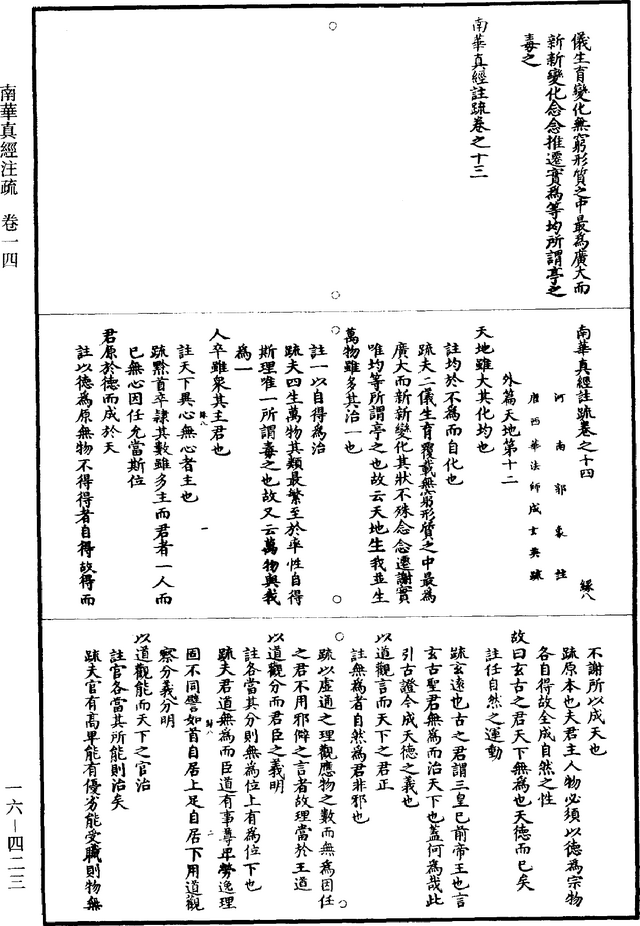 南華真經注疏　卷一四
儀生育變化無窮形質之中最為廣大而
新新變化念念推遷實為等均所謂亭之
毒之
南華真經註疏卷之十三
南華真經註疏卷之十四　緣八
河南郭象註
唐西華法師成玄英疏
外篇天地第十二
天地雖大其化均也
註均於不為而自化也
疏夫二儀生育覆載無窮形質之中最為
廣大而新新變化其狀不殊念念遷謝實
唯均等所謂亭之也故云天地生我並生
萬物雖多其治一也
註一以自得為治
疏夫四生萬物其類最繁至於率性自得
斯理唯一所謂毒之也故又云萬物與我
為一
人卒雖衆其主君也
註天下異心無心者主也
疏黔首卒隸其數雖多主而君者一人而
已無心因任允當斯位
君原於德而成於天
註以德為原無物不得得者自得故得而
不謝所以成天也
疏原本也夫君主人物必須以德為宗物
各自得故全成自然之性
故曰玄古之君天下無為也天德而已矣
註任自然之運動
疏玄遠也古之君謂三皇已前帝王也言
玄古聖君無為而治天下也蓋何為哉此
引古證今成天德之義也
以道觀言而天下之君正
註無為者自然為君非邪也
疏以虛通之理觀應物之數而無為因任
之君不用邪僻之言者故理當於王道
以道觀分而君臣之義明
註各當其分則無為位上有為位下也
疏夫君道無為而臣道有事尊卑勞逸理
固不同譬如首自居上足自居下用道觀
察分義分明
以道觀能而天下之官治
註官各當其所能則治矣
疏夫官有高卑能有優劣能受職則物無
一六—四二三